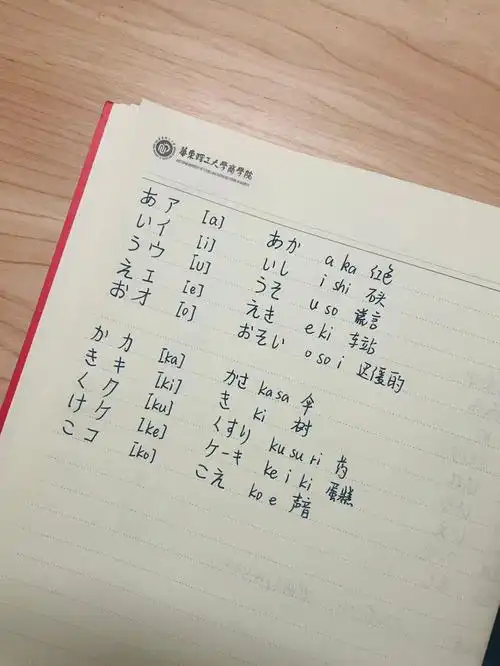 華東理工大學商學院
あ ア [a] あか aka 红色
い イ [i] いし ishi 石头
う ウ [u] うそ uso 谎言
え エ [e] えき eki 车站
お オ [o] おそい osoi 迟缓的
か カ [ka] かさ kasa 伞
き キ [ki] き ki 树
く ク [ku] くすり kusuri 药
け ケ [ke] ケーキ keiki 蛋糕
こ コ [ko] こえ koe 声音